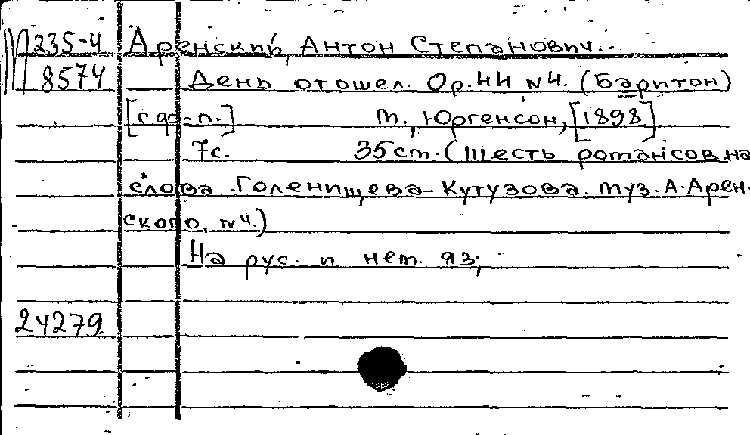 М 235-4 Аренский, Антон Степанович.
8574 День отошел. Op.44 №4. (Баритон)
[с ф-п.] М., Юргенсон, [1898]
7с. 35см. (Шесть романсов на
слова Голенищева-Кутузова. Муз. А. Арен-
ского, №4.)
На рус. и нем. яз;
24279